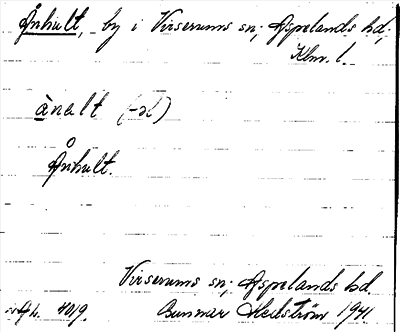 Ånhult, by i Virserums sn; Aspelands hd;
Klm. l.
ànalt
Ånhult.
Virserums sn; Aspelands hd.
4019. Gunnar Hedström 1941